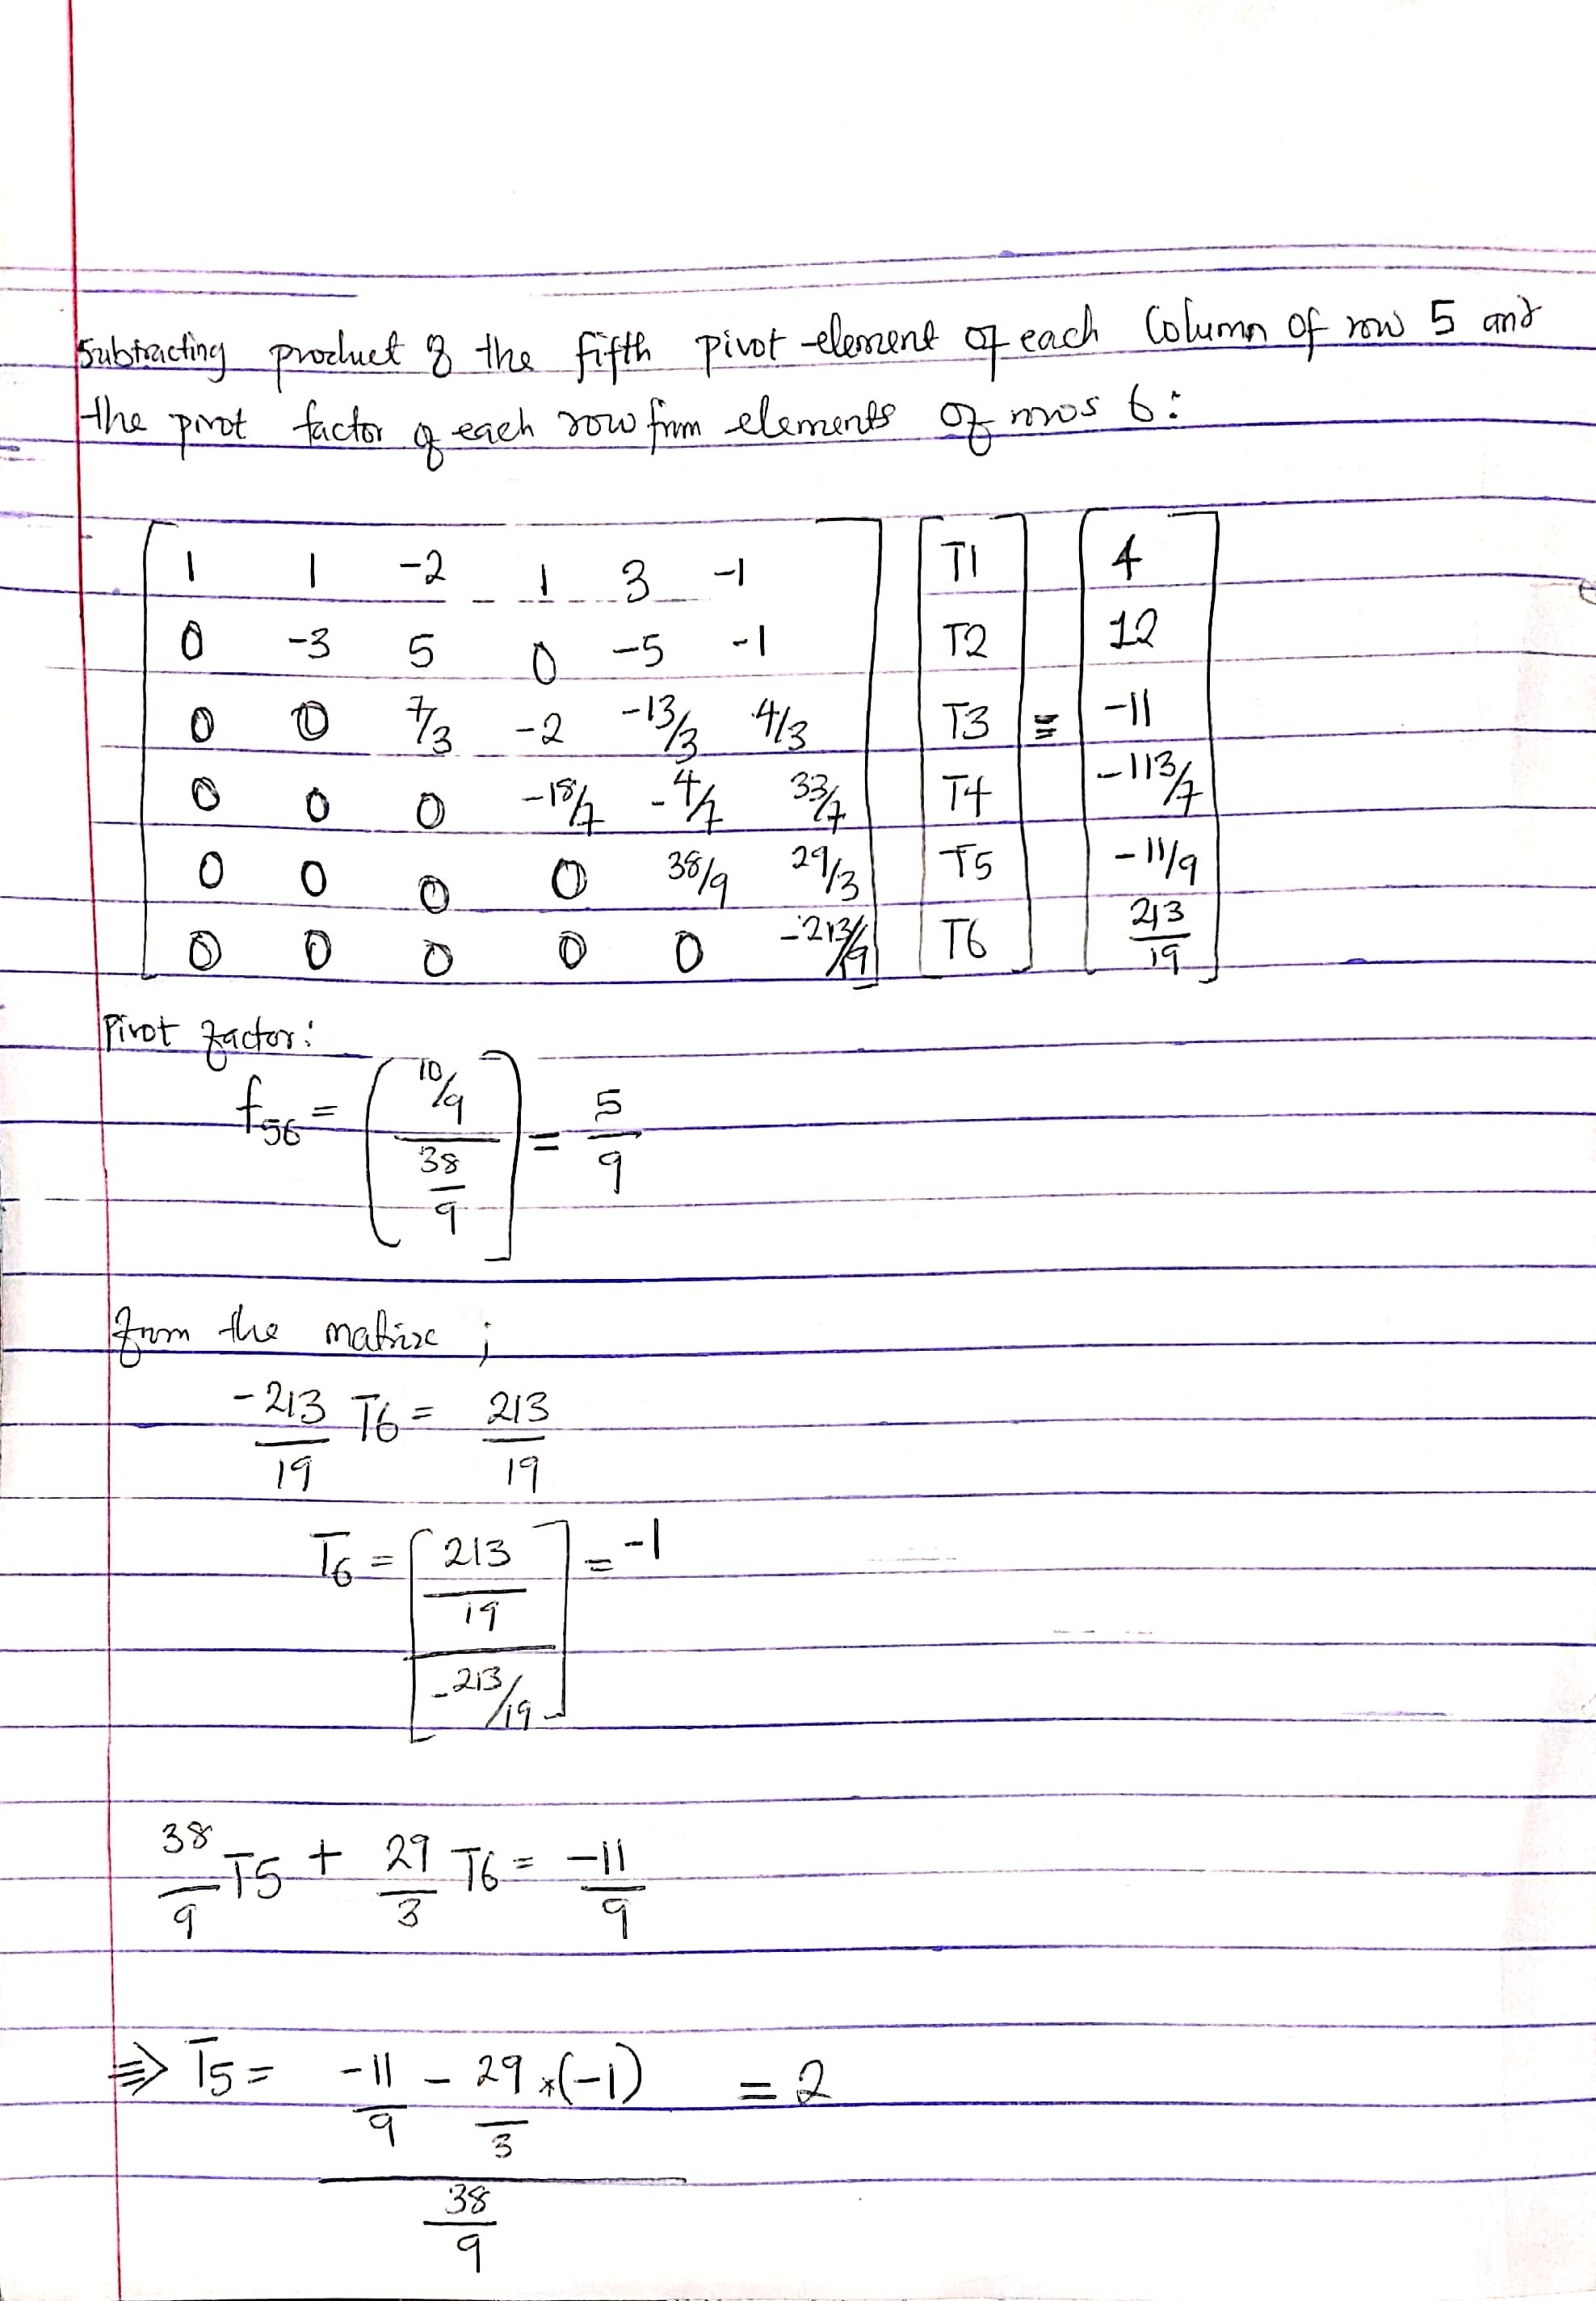 Subtracting product of the fifth pivot element of each Column of row 5 and
the pivot factor of each row from elements of rows 6:
1 1 -2 1 3 -1 T1 4
0 -3 5 0 -5 -1 T2 12
0 0 7/3 -2 -13/3 4/3 T3 = -11
0 0 0 -18/7 -4/7 33/7 T4 -113/7
0 0 0 0 38/9 29/3 T5 -11/9
0 0 0 0 0 -213/19 T6 213/19
Pivot factor:
f56 = [10/9 / 38/9] = 5/9
from the matrix ;
-213/19 T6 = 213/19
T6 = [213/19 / -213/19] = -1
38/9 T5 + 29/3 T6 = -11/9
⇒ T5 = -11/9 - 29/3 *(-1) / 38/9 = 2